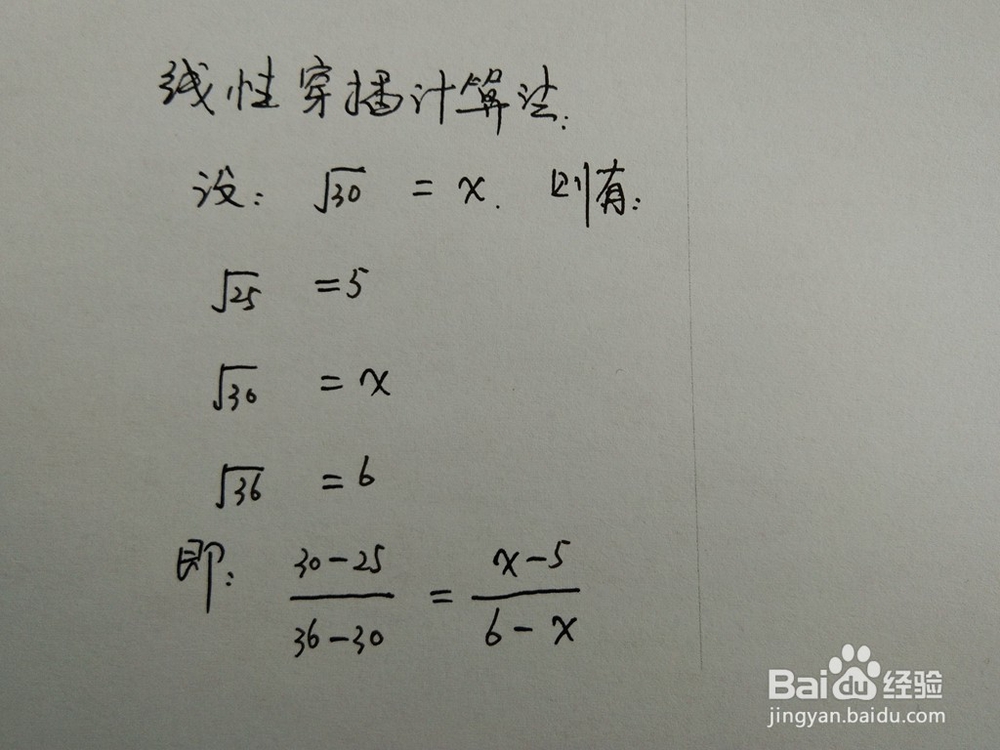 线性穿插计算法:
设: √30 = x. 则有:
√25 = 5
√30 = x
√36 = 6
即: (30-25)/(36-30) = (x-5)/(6-x)
Baidu经验
jingyan.baidu.com